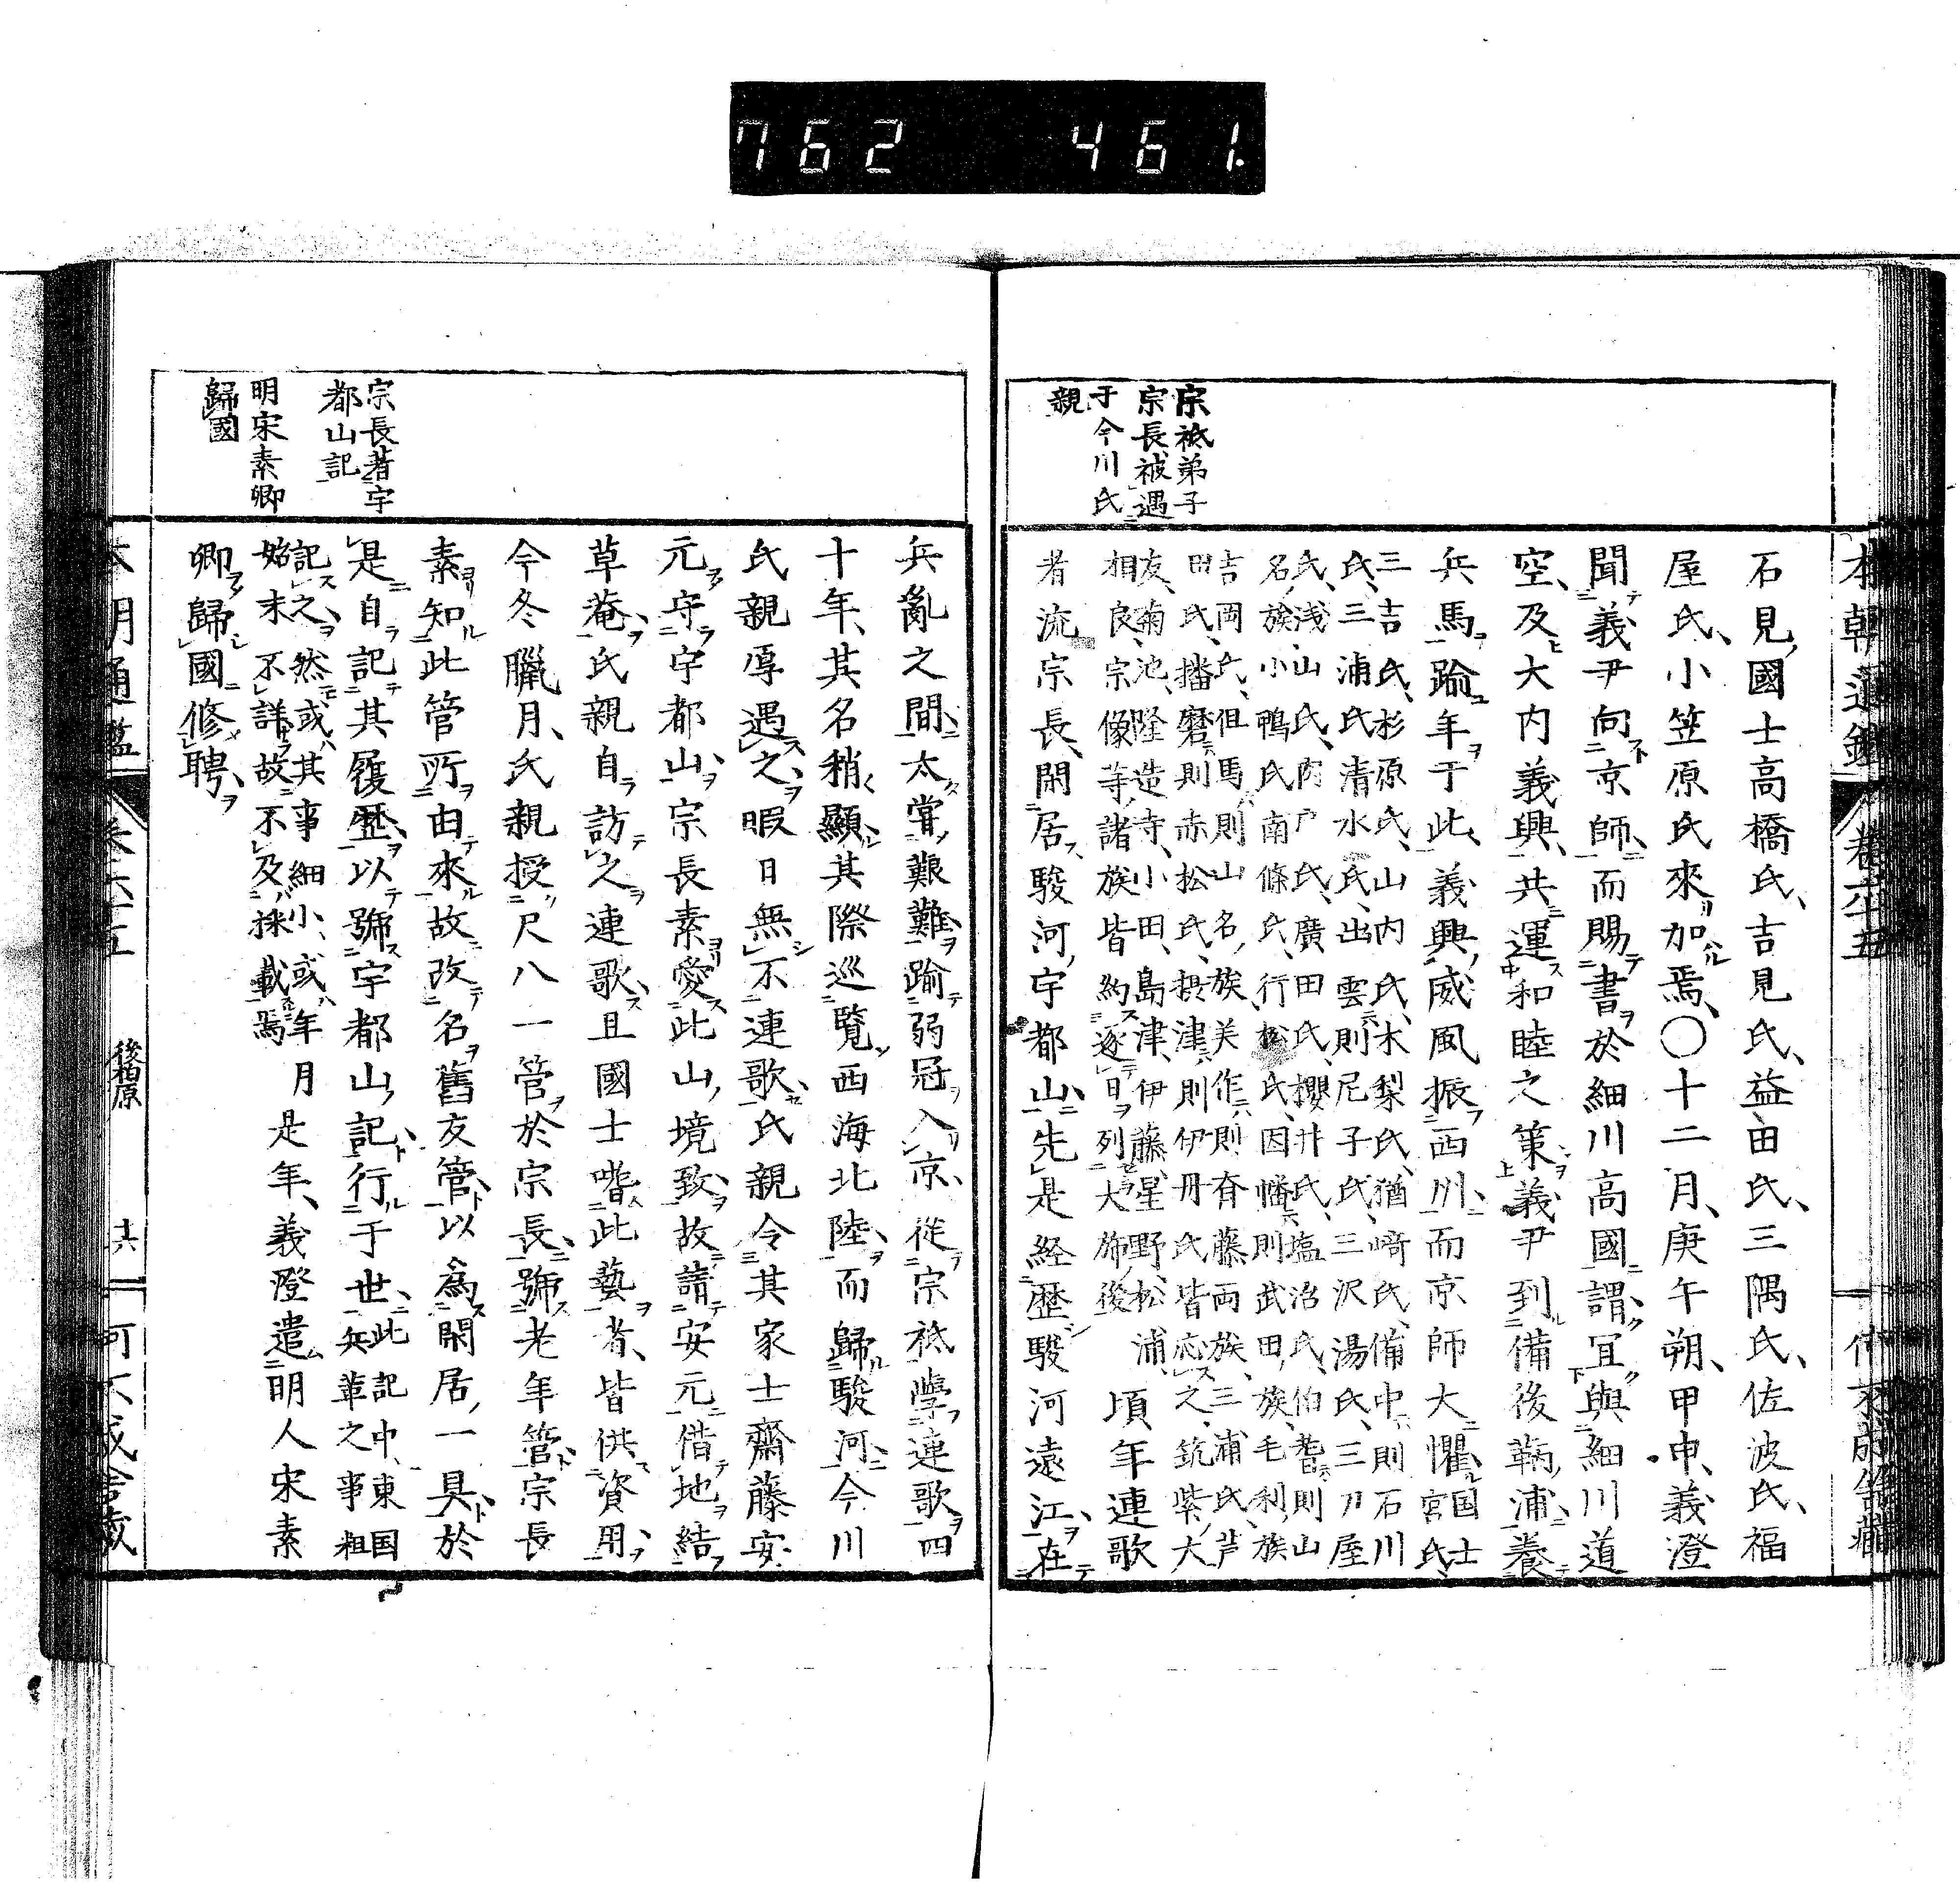 762 461
宗祇弟子
宗長被遇
于今川氏
親
石見國士高橋氏吉見氏益田氏三隅氏佐波氏福
屋氏小笠原氏來加焉〇十二月庚午朔甲申義澄
聞義尹向京師而賜書於細川高國謂宜與細川道
空及大内義興共運和睦之策義尹到備後鞆浦養
兵馬踰年于此義興威風振西州而京師大懼国士宮氏
三吉氏杉原氏山内氏木梨氏猶﨑氏備中則石川
氏三浦氏清水氏出雲則尼子氏三沢湯氏三刀屋
氏浅山氏肉戸氏廣田氏櫻井氏塩治氏伯耆則山
名族小鴨氏南條氏行松氏因幡則武田族毛利族
吉岡氏但馬則山名族美作則齊藤両族三浦氏芦
田氏播磨則赤松氏摂津則伊丹氏皆応之筑紫大
友菊池隆造寺小田島津伊藤星野松浦
相良宗像等諸族皆約逐日列大旆後
頃年連歌
者流宗長閑居駿河宇都山先是経歴駿河遠江在
本朝通鑑 卷六十五
宗長著宇
都山記
明宋素卿
歸國
兵亂之間太甞艱難踰弱冠入京從宗祇學連歌四
十年其名稍顯其際巡覧西海北陸而歸駿河今川
氏親厚遇之暇日無不連歌氏親令其家士齋藤安
元守宇都山宗長素愛此山境致故請安元借地結
草菴氏親自訪之連歌且國士嗜此藝者皆供資用
今冬臘月氏親授尺八一管於宗長號老年管宗長
素知此管所由來故改名舊友管以為閑居一具於
是自記其履歴以號宇都山記行于世此記中東国兵革之事粗
記之然或其事細小或年月
始末不詳故不及採載焉
是年義澄遣明人宋素
卿歸國修聘
後柏原